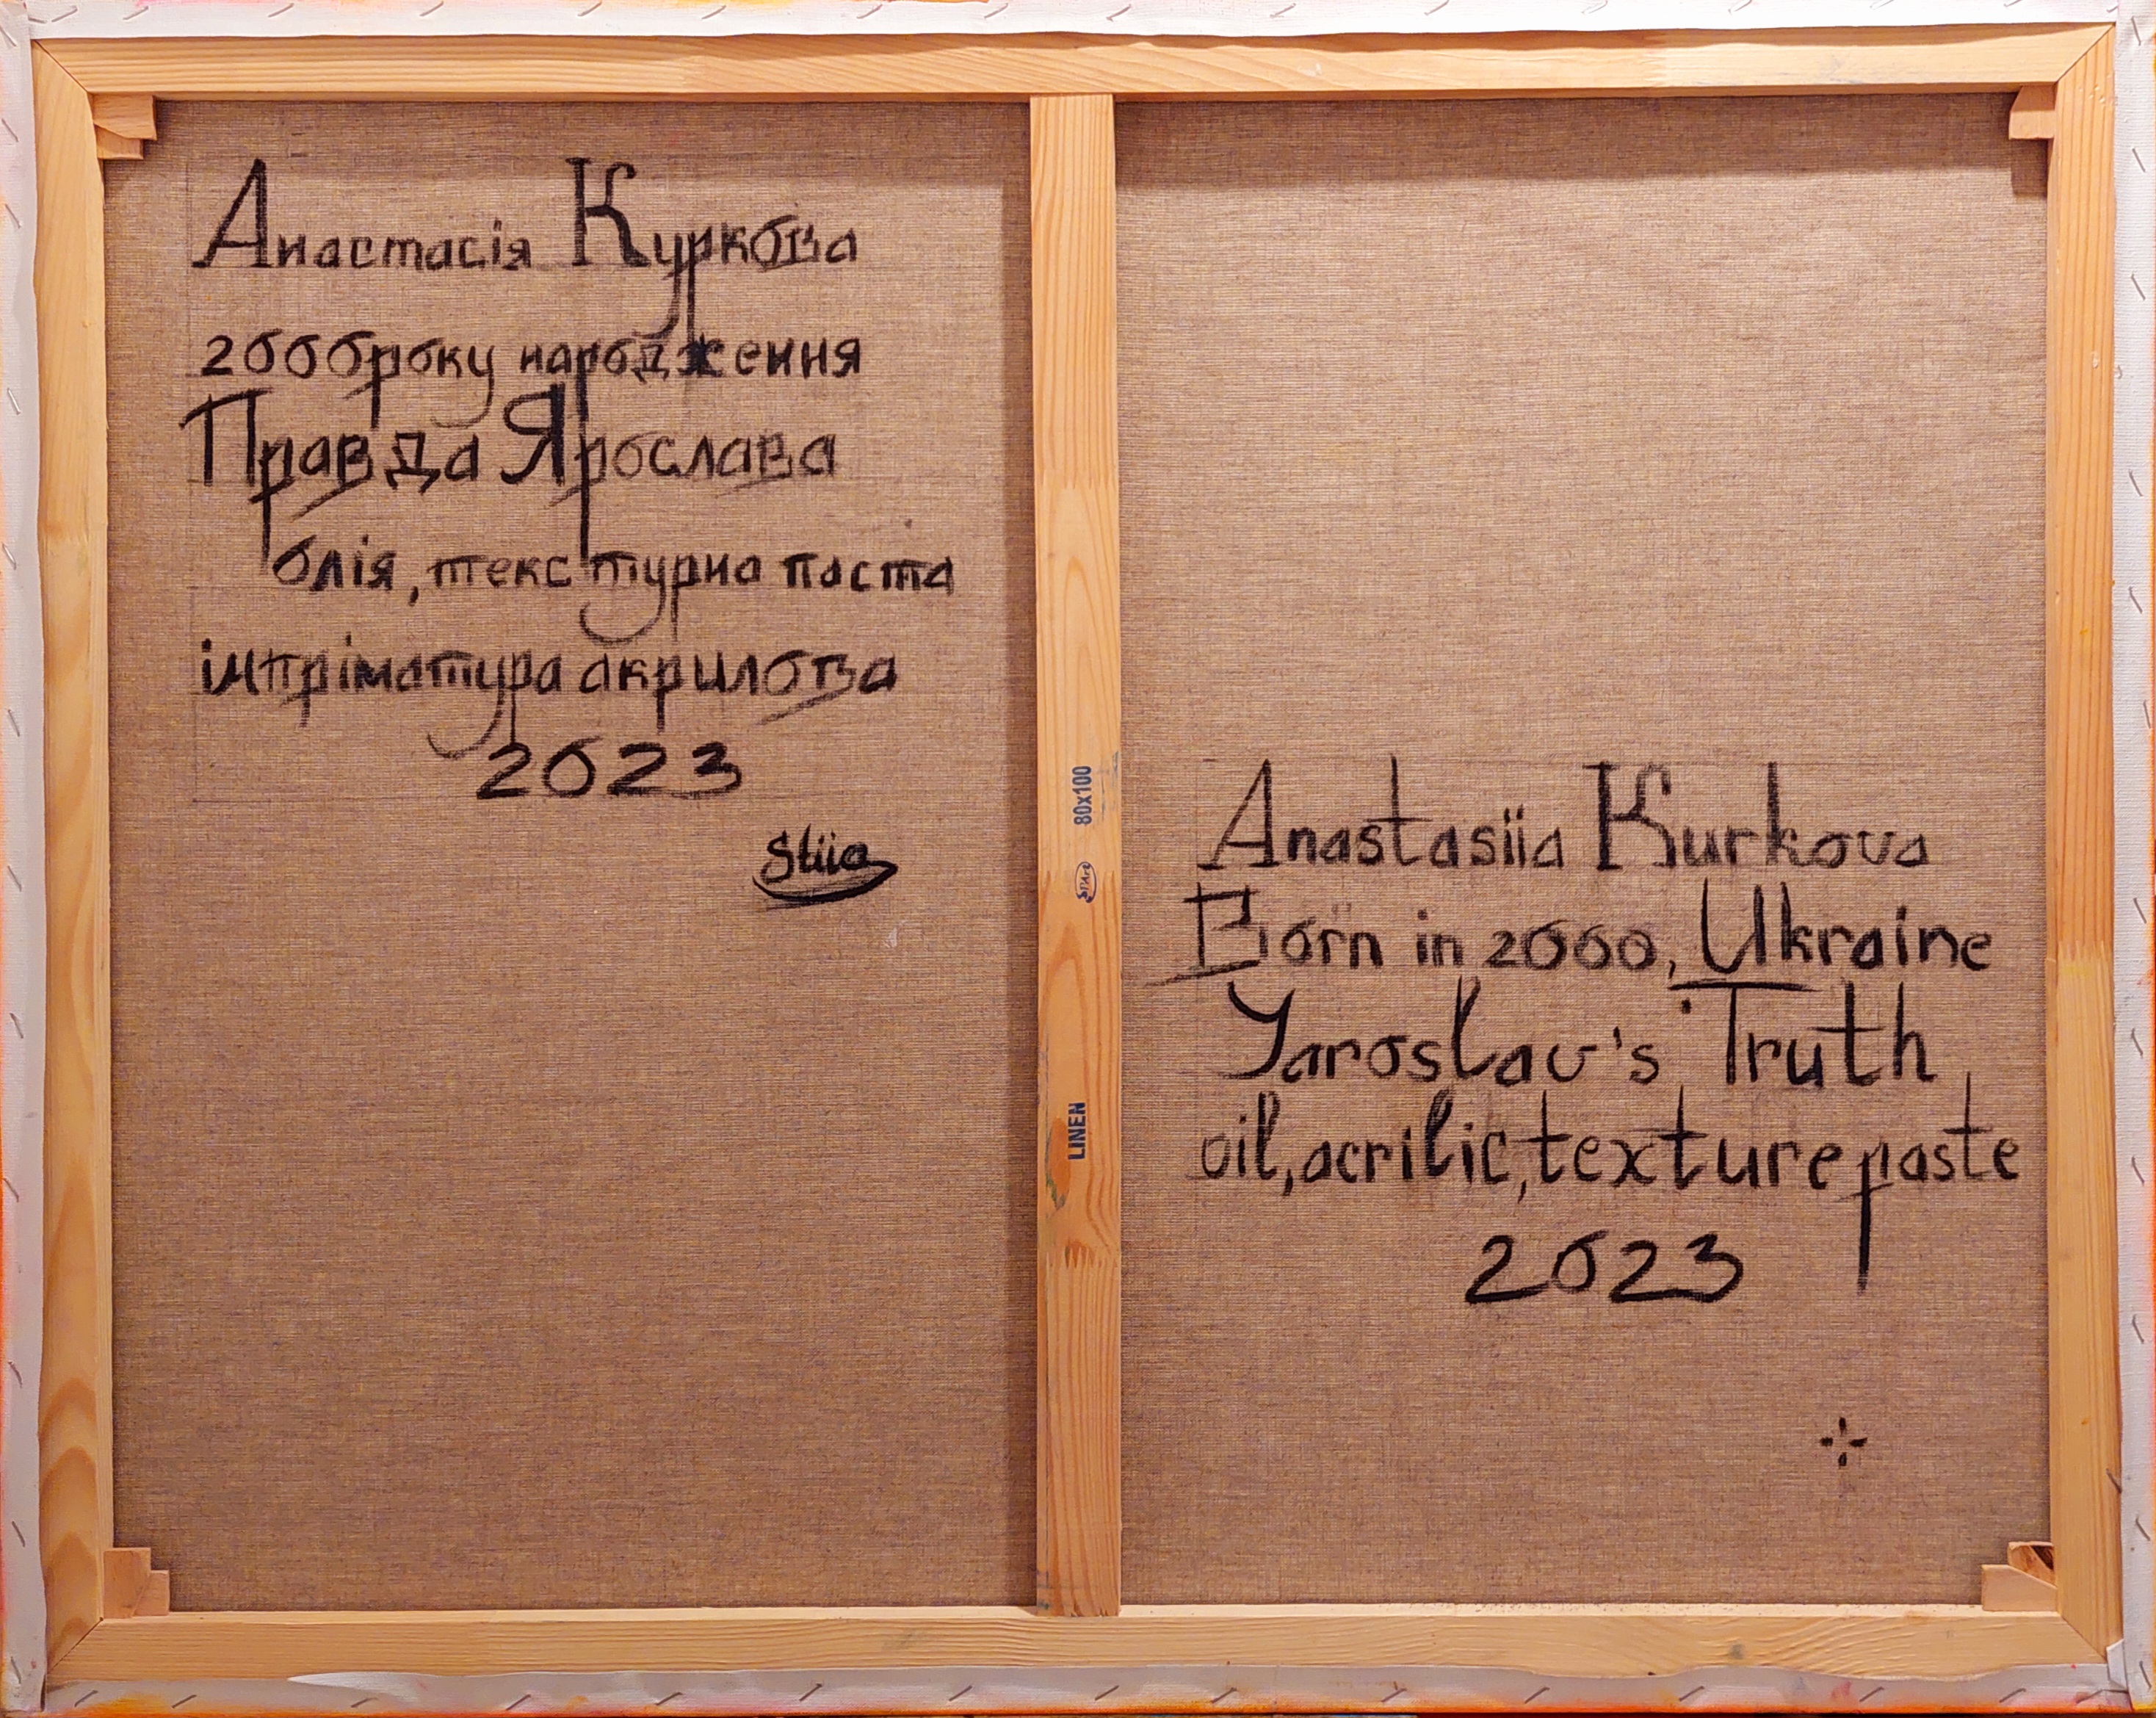 Анастасія Куркова
2000 року народження
Правда Ярослава
олія, текстурна паста
імпріматура акрилова
2023
Stiia
80x100
LINEN
Anastasiia Kurkova
Born in 2000, Ukraine
Yaroslav's Truth
oil, acrilic, texture paste
2023